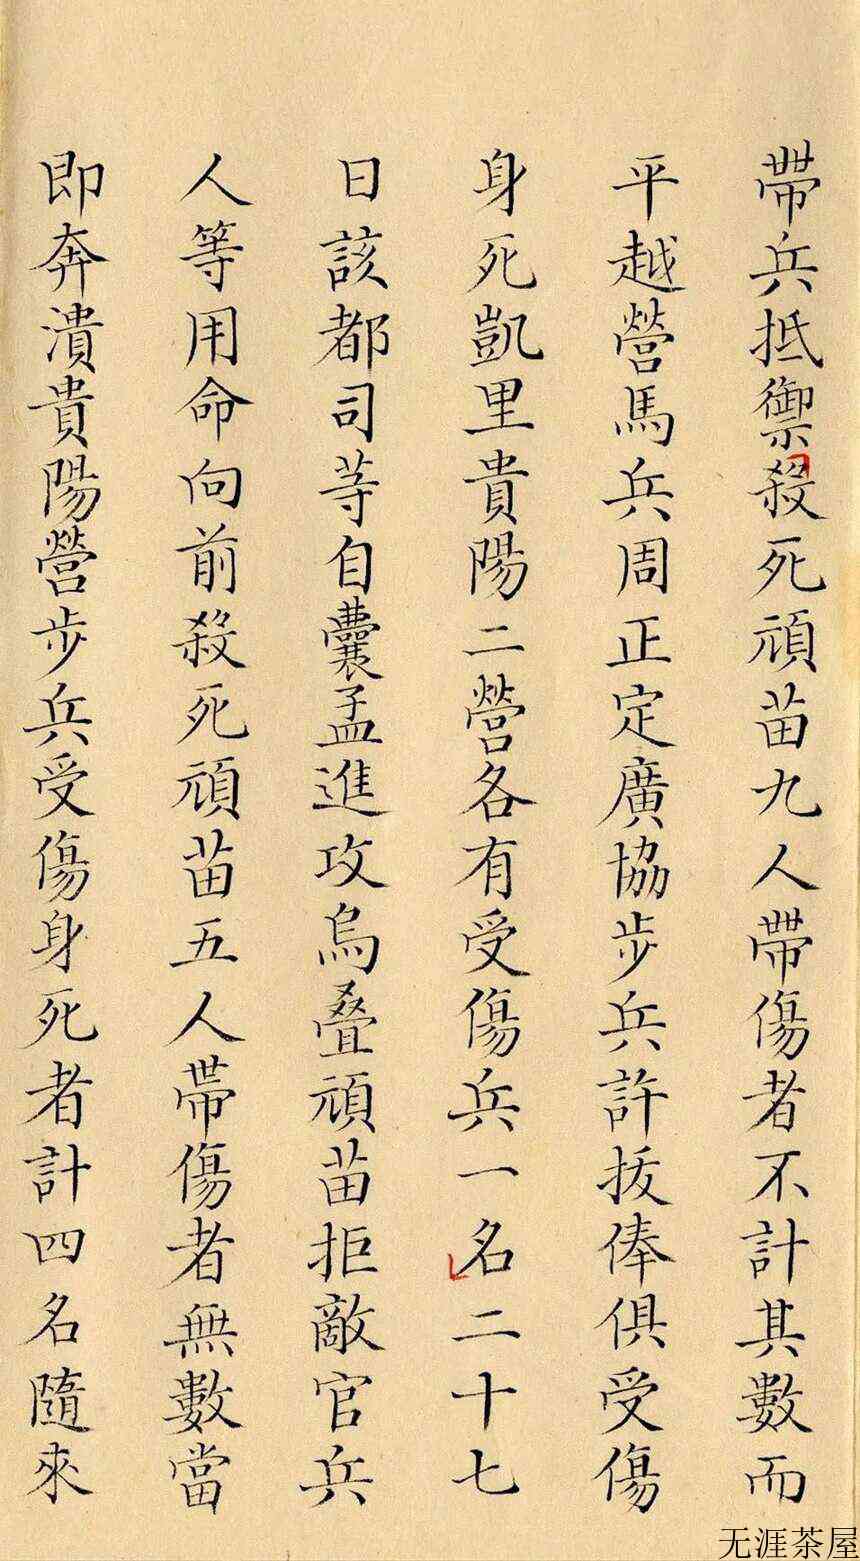 帶兵抵禦殺死頑苗九人帶傷者不計其數而
平越營馬兵周正定廣協步兵許拔俸俱受傷
身死凱里貴陽二營各有受傷兵一名二十七
日該都司等自囊孟進攻烏叠頑苗拒敵官兵
人等用命向前殺死頑苗五人帶傷者無數當
即奔潰貴陽營步兵受傷身死者計四名隨來
无涯茶屋